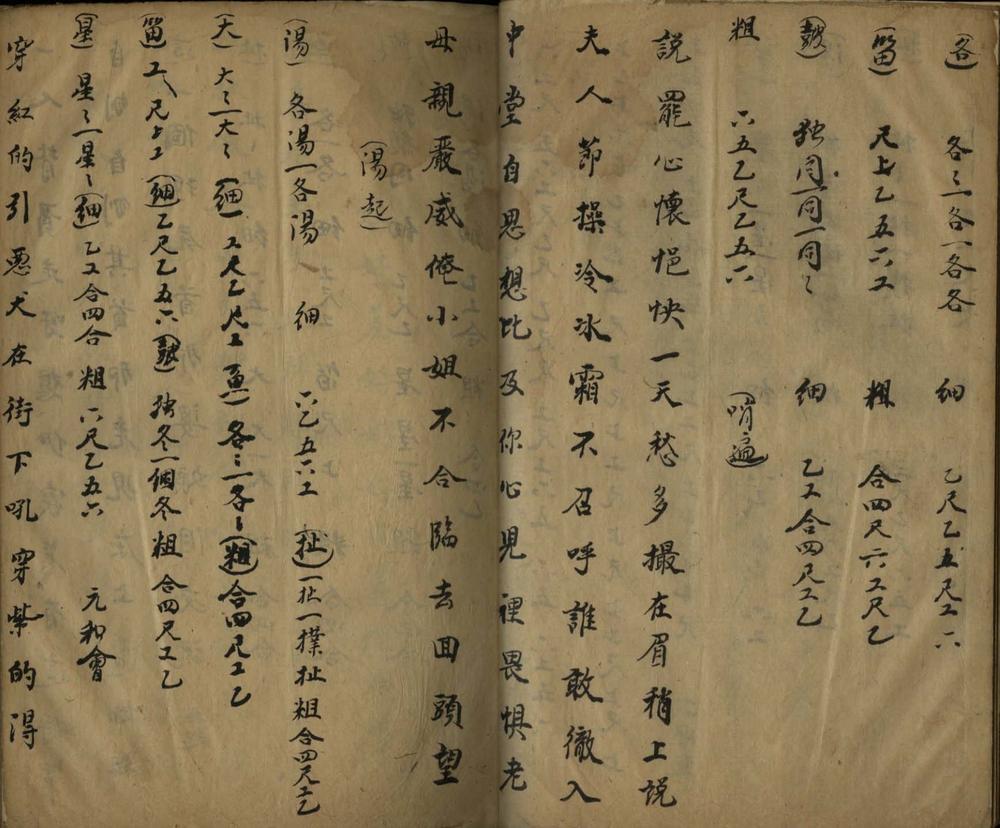 各 各〻一各一各各 細 乙尺乙五尺工六
笛 尺上乙五六工 粗 合四尺六工尺乙
鼓 独同一同一同〻 細 乙工合四尺工乙
粗 六五乙尺乙五六 哨遍
說罷心懷悒怏一天愁多撮在眉稍上說
夫人節操冷冰霜不召呼誰敢徹入
中堂自思想比及你心見裡畏惧老
母親嚴威俺小姐不合臨去回頭望
湯起
湯 各湯一各湯 細 六乙五六工 扯 一扯一摆扯粗合四尺工乙
大 大〻一大〻 細 工尺乙尺工 各〻一各〻 粗 合四尺工乙
笛 工尺上工 細 乙尺乙五六 鼓 独冬一個冬粗 合四尺工乙
星 星〻一星〻 細 乙工合四合 粗 六尺乙五六 元和會
穿紅的引惡犬在街下吼穿紫的得